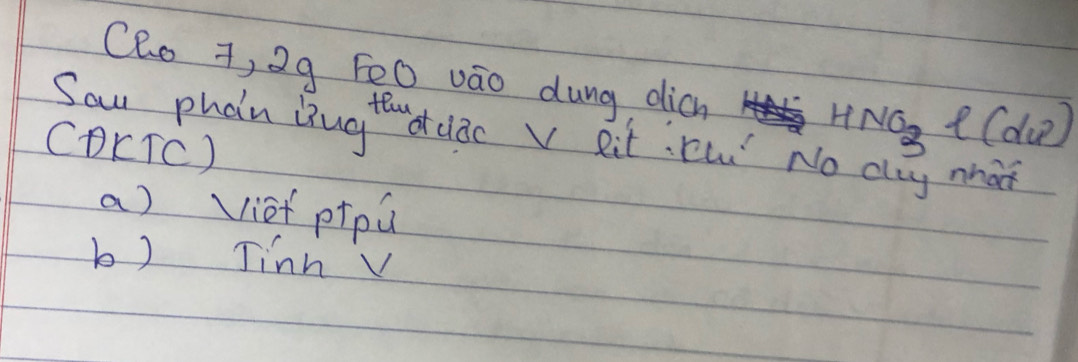 Cho 7,2g FeO vào dung dịch HNO3 l (dư)
Sau phản ứng thu được V lít khí NO duy nhất
(ĐKTC)
a) Viết ptpứ
b) Tính V